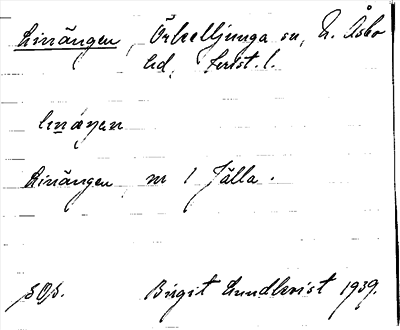 Linängen, Örkelljunga sn, N. Åsbo
hd, Krist. l.
linäŋen
Linängen nr 1 Fjälla.
SOS. Birgit Lundkvist 1939.